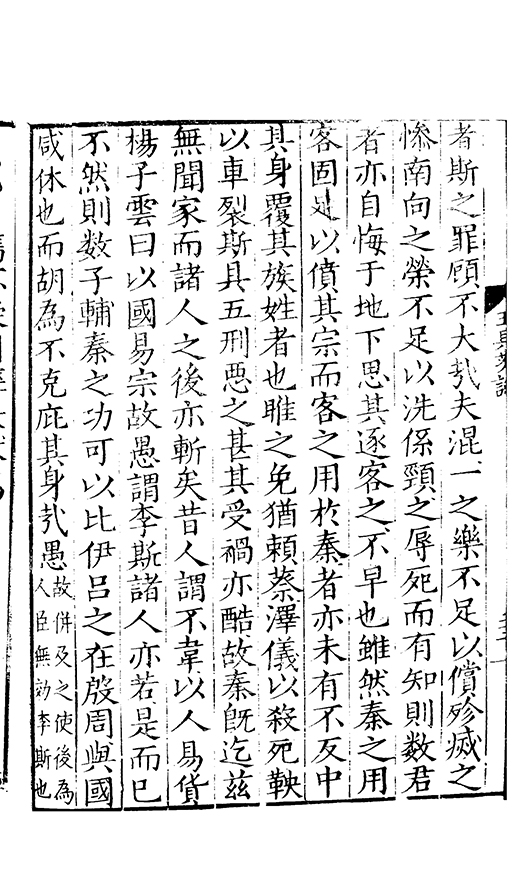 者斯之罪顧不大㢤夫混一之樂不足以償殄滅之
慘南向之榮不足以洗係頸之辱死而有知則数君
者亦自悔于地下思其逐客之不早也雖然秦之用
客固足以僨其宗而客之用於秦者亦未有不反中
其身覆其族姓者也睢之免猶頼蔡澤儀以殺死鞅
以車裂斯具五刑悪之甚其受禍亦酷故秦旣迄兹
無聞家而諸人之後亦斬矣昔人謂不韋以人易貨
楊子雲曰以國易宗故愚謂李斯諸人亦若是而已
不然則数子輔秦之功可以比伊吕之在殷周與國
咸休也而胡為不克庇其身㢤愚
故併及之使後為
人臣無効李斯也